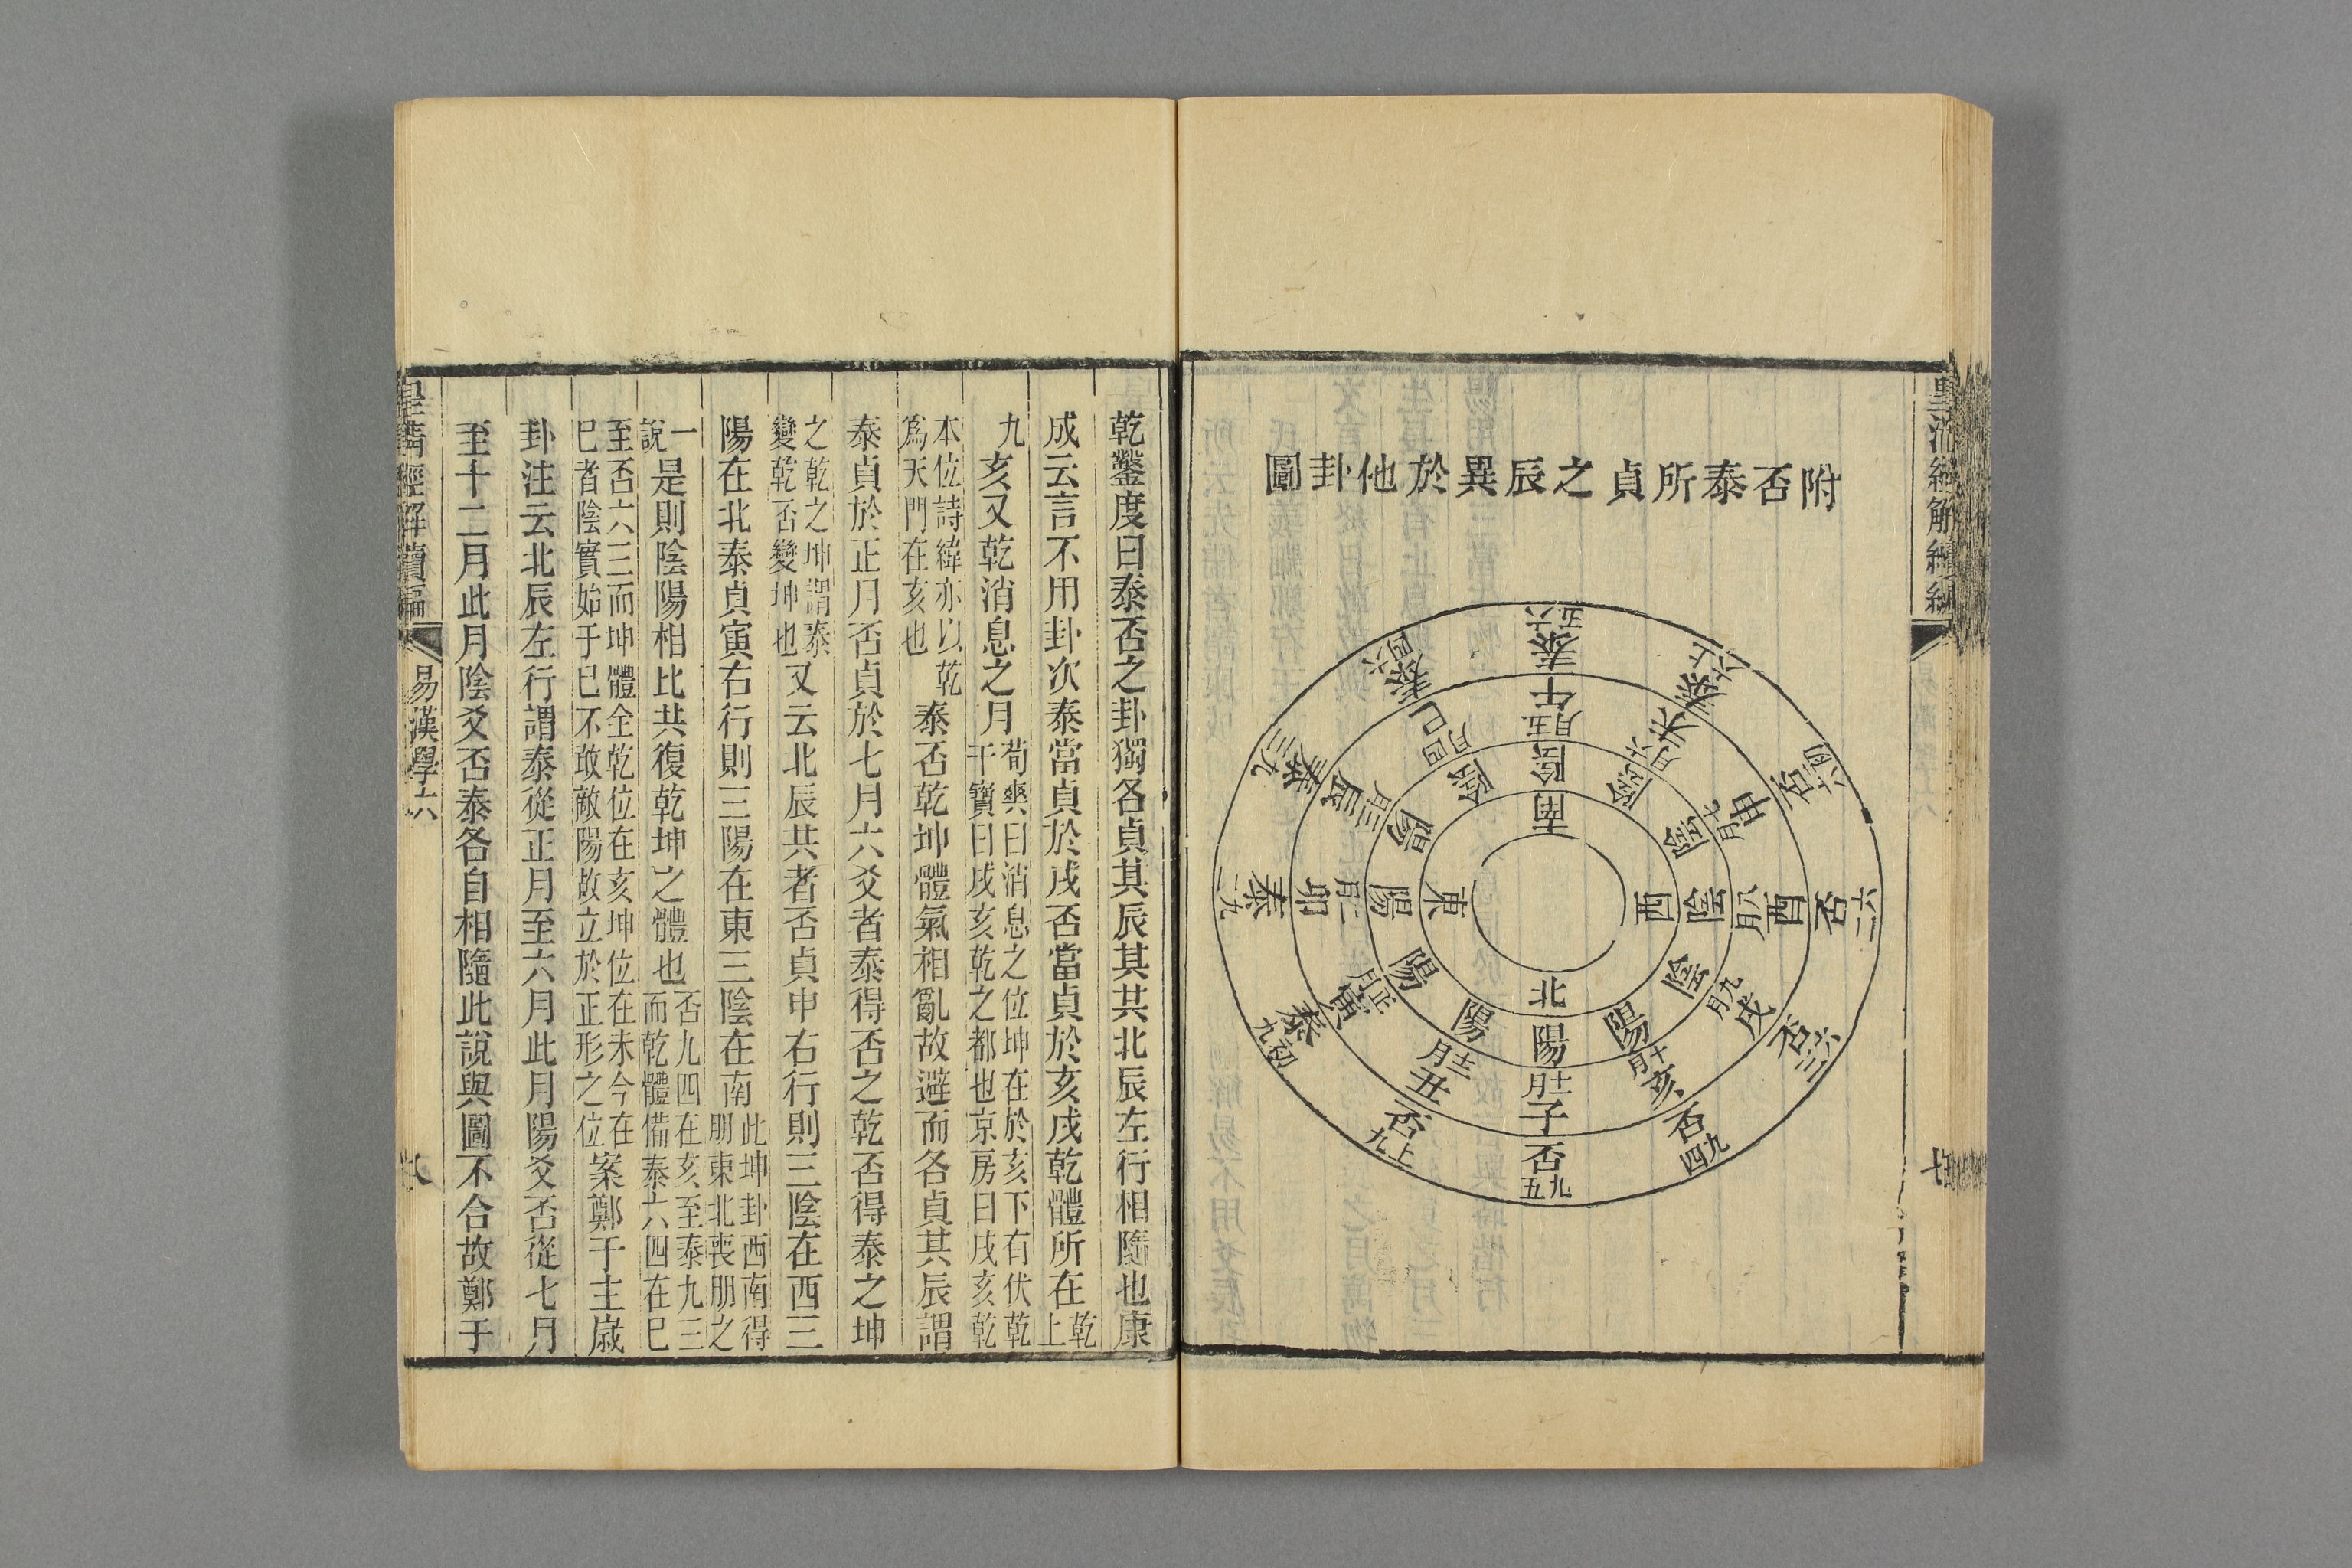 附否泰所貞之辰異於他卦圖
南
東
西
北
陰
陰
陰
陰
陰
陽
陽
陽
陽
陽
陽
陰
泰六五 午五月
泰上六 未六月
否六四 申七月
否六二 酉八月
否六三 戌九月
否九四 亥十月
否九五 子十一月
否上九 丑十二月
泰初九 寅正月
泰九二 卯二月
泰九三 辰三月
泰六四 巳四月
乾鑿度曰泰否之卦獨各貞其辰其共北辰左行相隨也康
成云言不用卦次泰當貞於戌否當貞於亥戌乾體所在乾上
九亥又乾消息之月荀爽曰消息之位坤在於亥下有伏乾干寶曰戌亥乾之都也京房曰戌亥乾
本位詩緯亦以乾爲天門在亥也泰否乾坤體氣相亂故避而各貞其辰謂
泰貞於正月否貞於七月六爻者泰得否之乾否得泰之坤
之乾之坤謂泰變乾否變坤也又云北辰共者否貞申右行則三陰在西三
陽在北泰貞寅右行則三陽在東三陰在南此坤卦西南得朋東北喪朋之
一說是則陰陽相比共復乾坤之體也否九四在亥至泰九三而乾體備泰六四在巳
至否六三而坤體全乾位在亥坤位在未今在巳者陰實始于巳不敢敵陽故立於正形之位案鄭于主歲
卦注云北辰左行謂泰從正月至六月此月陽爻否從七月
至十二月此月陰爻否泰各自相隨此說與圖不合故鄭于
皇清經解續編
易漢學六